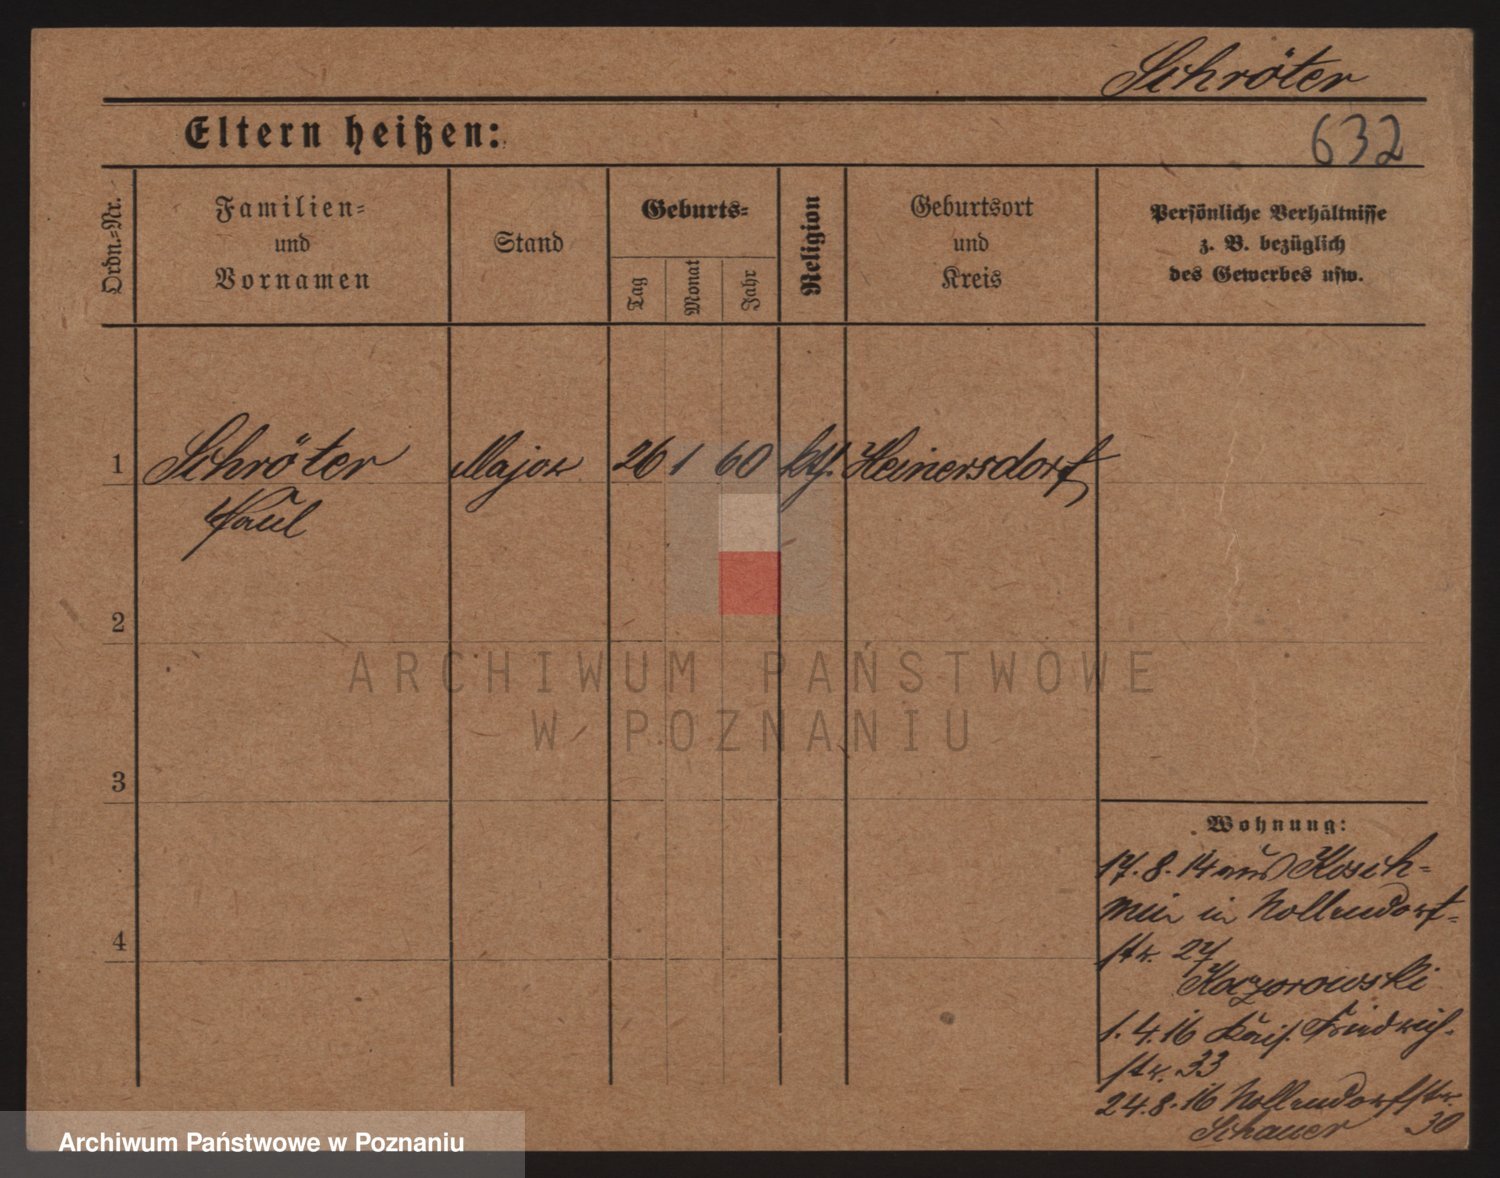 Schröter
Eltern heißen:
632
Ordn.-Nr.
Familien-
und
Vornamen
Stand
Geburts-
Tag
Monat
Jahr
Religion
Geburtsort
und
Kreis
Persönliche Verhältnisse
z. B. bezüglich
des Gewerbes usw.
1 Schröter Major 26 1 60 ktl. Heinersdorf
Paul
2
ARCHIWUM PAŃSTWOWE
W POZNANIU
3
Wohnung:
17.8.14 aus Kosch-
min in Nollendorf-
str. 27
Kaczorowski
4
1.4.16 Kais. Friedrich-
str. 33
24.8.16 Nollendorfstr.
Schauer 30
Archiwum Państwowe w Poznaniu